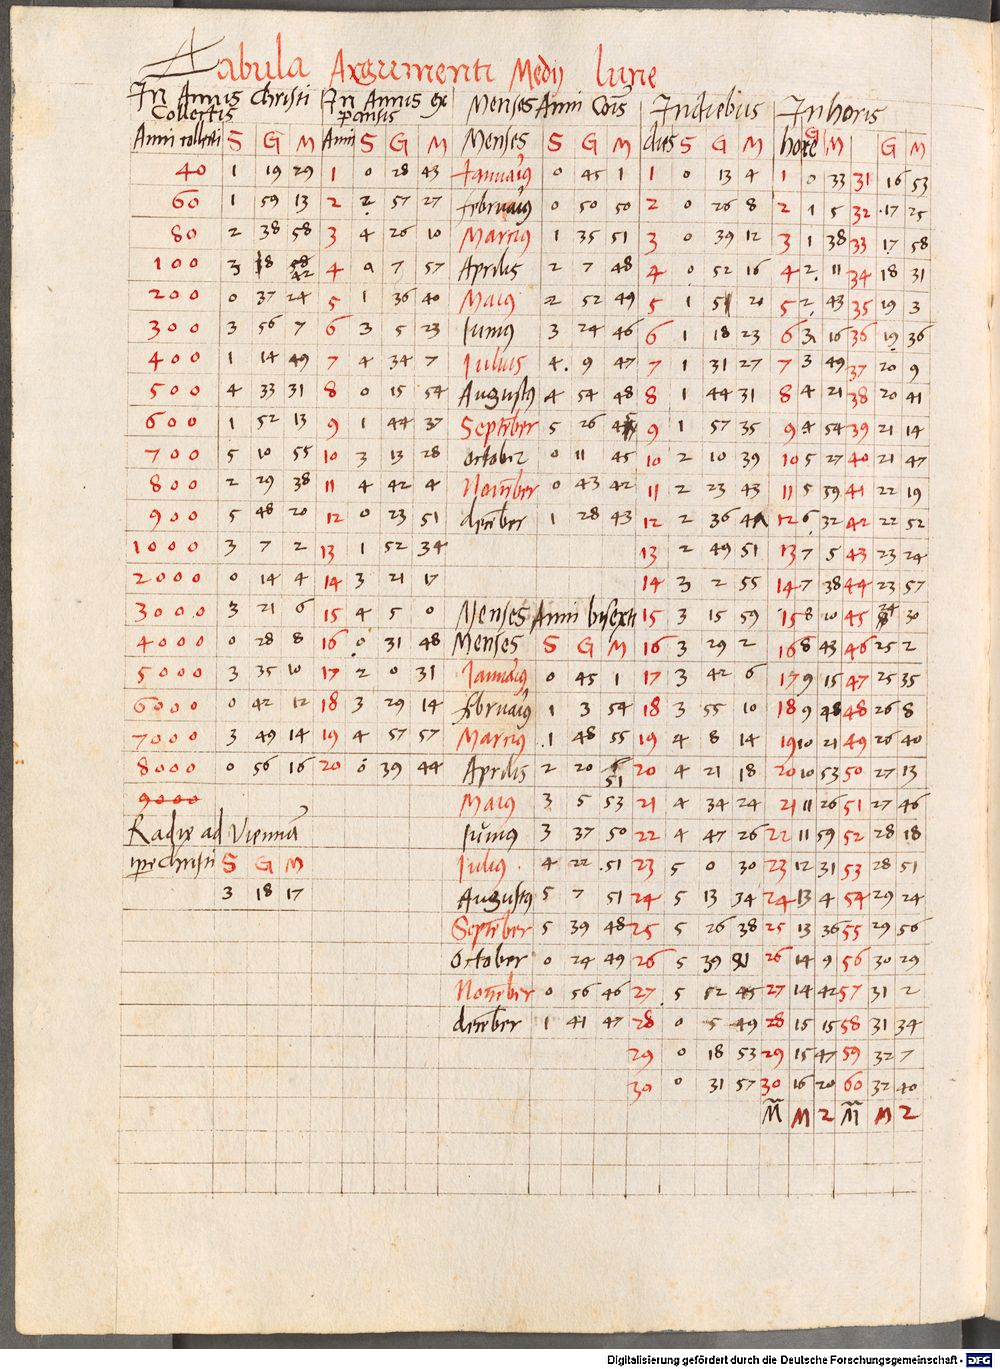 Tabula Argumenti Medij lune
In Annis Christi Collectis In Annis expansis Menses Anni Cõis In diebus In horis
Anni collecti S G M Anni S G M Menses S G M dies S G M hore G M G M
40 1 19 29 1 0 28 43 Januarius 0 45 1 1 0 13 4 1 0 33 31 16 53
60 1 59 13 2 2 57 27 februarius 0 50 50 2 0 26 8 2 1 5 32 17 25
80 2 38 58 3 4 26 10 Marcius 1 35 51 3 0 39 12 3 1 38 33 17 58
100 3 18 42 4 0 7 57 Aprilis 2 7 48 4 0 52 16 4 2 11 34 18 31
200 0 37 24 5 1 36 40 Maius 2 52 49 5 1 5 20 5 2 43 35 19 3
300 3 56 7 6 3 5 23 Iunius 3 24 46 6 1 18 23 6 3 16 36 19 36
400 1 14 49 7 4 34 7 Julius 4 9 47 7 1 31 27 7 3 49 37 20 9
500 4 33 31 8 0 15 54 Augustus 4 54 48 8 1 44 31 8 4 21 38 20 41
600 1 52 13 9 1 44 37 September 5 26 9 1 57 35 9 4 54 39 21 14
700 5 10 55 10 3 13 28 october 0 11 45 10 2 10 39 10 5 27 40 21 47
800 2 29 38 11 4 42 4 November 0 43 42 11 2 23 43 11 5 59 41 22 19
900 5 48 20 12 0 23 51 december 1 28 43 12 2 36 12 6 32 42 22 52
1000 3 7 2 13 1 52 34 13 2 49 51 13 7 5 43 23 24
2000 0 14 4 14 3 21 17 14 3 2 55 14 7 38 44 23 57
3000 3 21 6 15 4 5 0 Menses Anni bisexti 15 3 15 59 15 8 10 45 24 30
4000 0 28 8 16 0 31 48 Menses S G M 16 3 29 2 16 8 43 46 25 2
5000 3 35 10 17 2 0 31 Januarius 0 45 1 17 3 42 6 17 9 15 47 25 35
6000 0 42 12 18 3 29 14 februarius 1 3 54 18 3 55 10 18 9 48 48 26 8
7000 3 49 14 19 4 57 57 Marcius 1 48 55 19 4 8 14 19 10 21 49 26 40
8000 0 56 16 20 0 39 44 Aprilis 2 20 51 20 4 21 18 20 10 53 50 27 13
9000 Maius 3 5 53 21 4 34 24 21 11 26 51 27 46
Radix ad Viennã Iunius 3 37 50 22 4 47 26 22 11 59 52 28 18
tpe Christi S G M Julius 4 22 51 23 5 0 30 23 12 31 53 28 51
3 18 17 Augustus 5 7 51 24 5 13 34 24 13 4 54 29 24
September 5 39 48 25 5 26 38 25 13 36 55 29 56
October 0 24 49 26 5 39 26 14 9 56 30 29
November 0 56 46 27 5 52 45 27 14 42 57 31 2
december 1 41 47 28 0 5 49 28 15 15 58 31 34
29 0 18 53 29 15 47 59 32 7
30 0 31 57 30 16 20 60 32 40
M̃ M 2 M̃ M 2
Digitalisierung gefördert durch die Deutsche Forschungsgemeinschaft - DFG